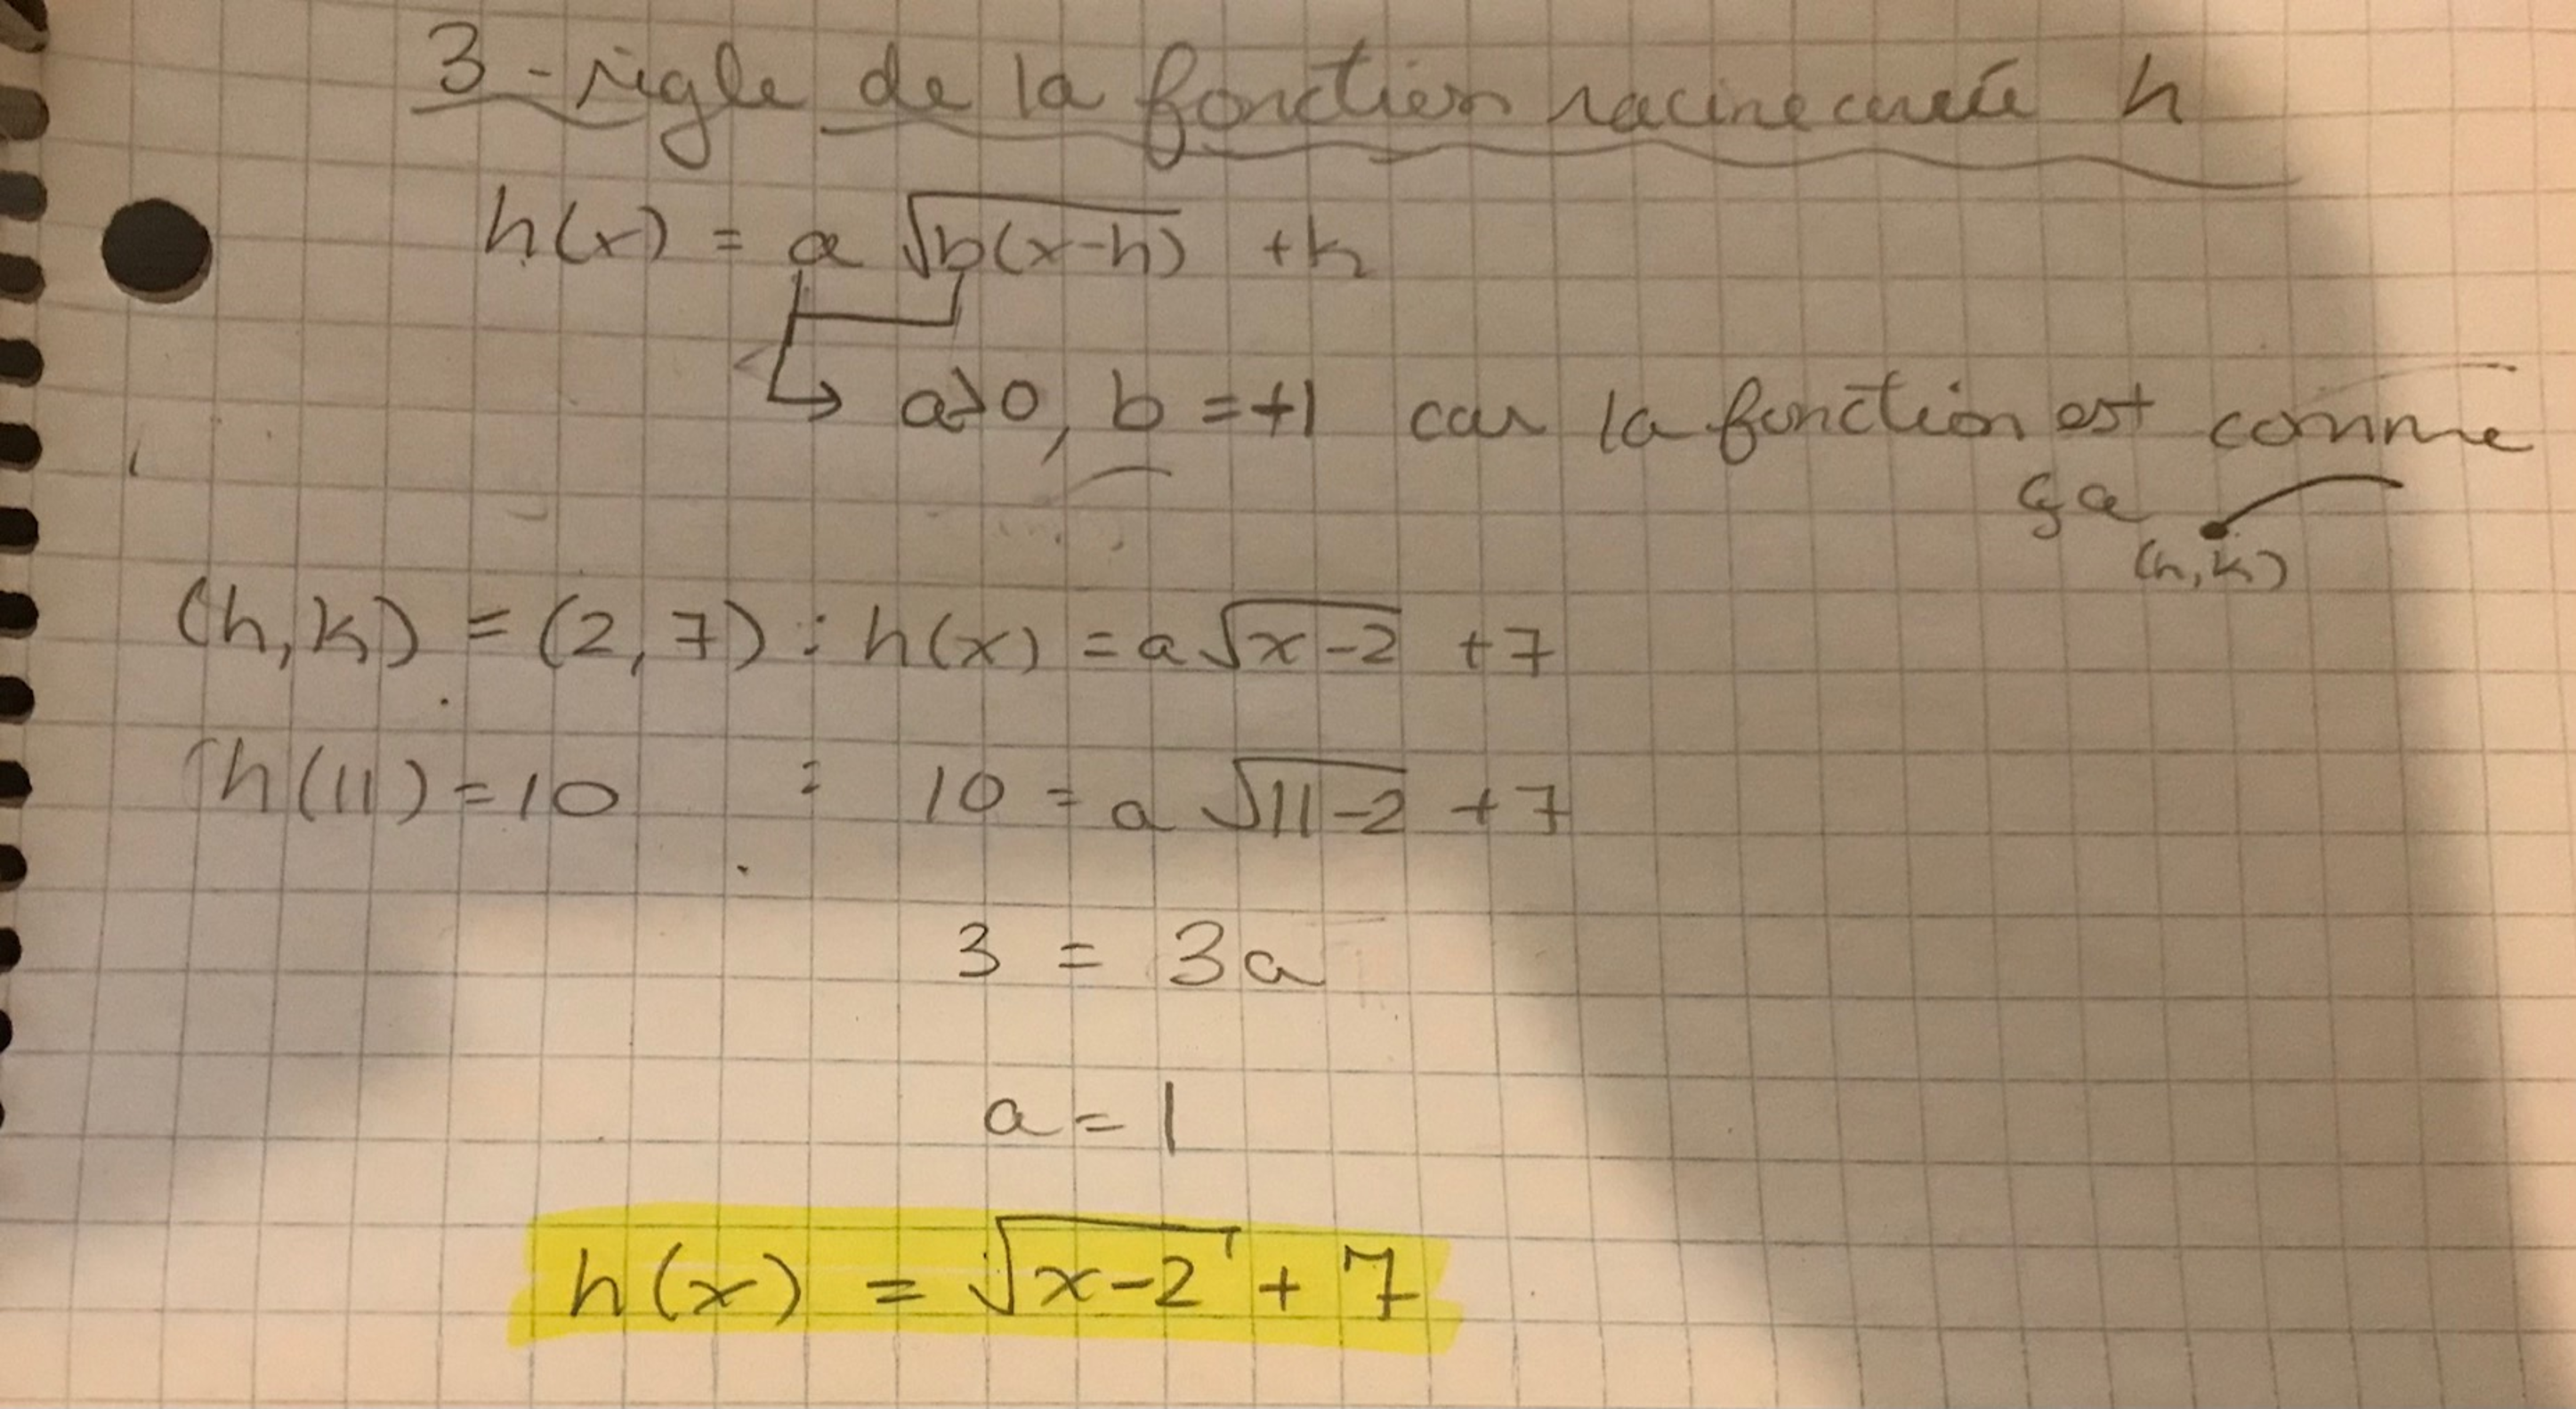 3 - règle de la fonction racine carrée h
h(x) = a √b(x-h) + k
a>0, b = +1 car la fonction est comme
ça
(h,k)
(h,k) = (2,7) : h(x) = a√x-2 + 7
h(11) = 10 : 10 = a √11-2 + 7
3 = 3a
a = 1
h(x) = √x-2 + 7